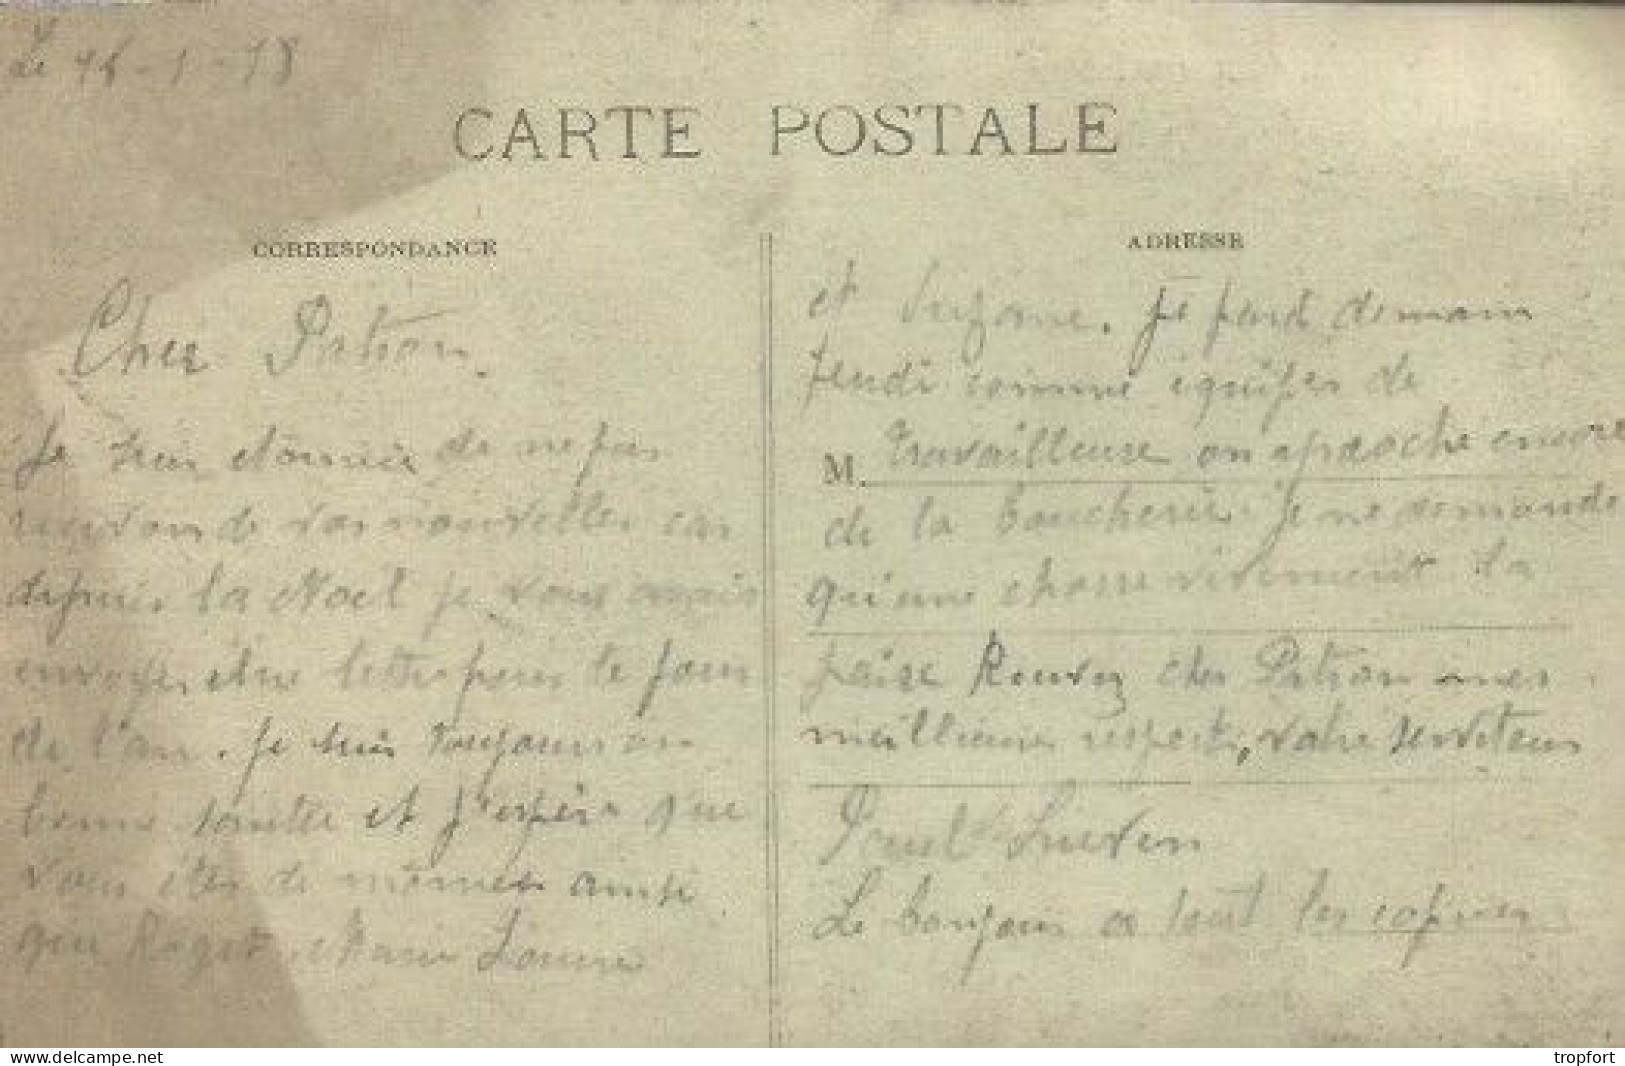 Le 16-1-18
CARTE POSTALE
CORRESPONDANCE
Cher Patron.
Je suis etonnée de ne pas
recevoir de vos nouvelles car
depuis la Noel je vous avais
envoyer une lettre pour le jour
de l'an. Je suis toujours en
bonne santée et j'espère que
vous étes de mêmes ainsi
que Roger, Marie Louise
ADRESSE
et Suzanne. Je part demain
Jeudi comme équipes de
M. travailleuse on aproche encore
de la boucherie. Je ne demande
qu'une chose vivement la
paise Recevez cher Patron mes
meilleurs respects, votre serviteur
Paul
Le bonjour a tout les copains
www.delcampe.net
tropfort